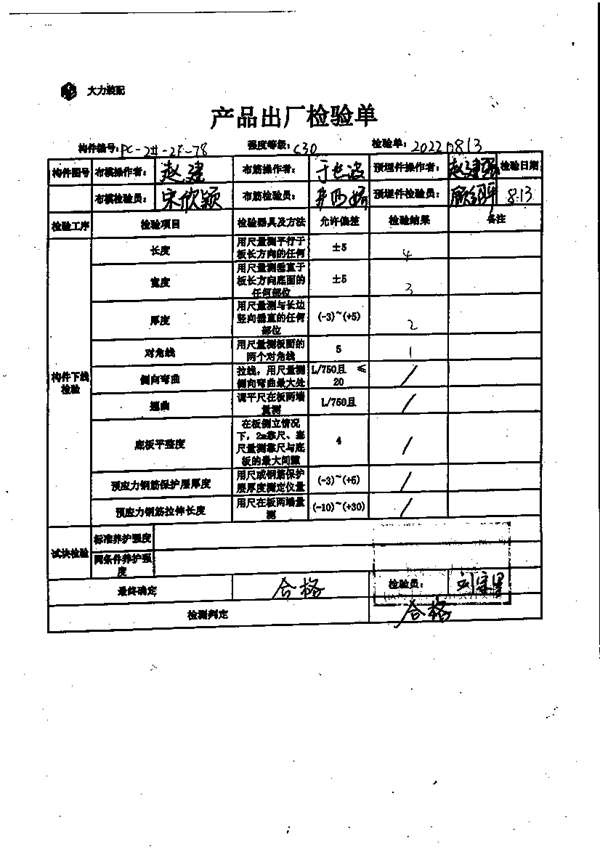 大力装配
产品出厂检验单
构件编号：PC-2#-2F-78 强度等级：C30 检验单：20220813
构件图号 布模操作者：赵建 布筋操作者： 预埋件操作者：赵建强 检验日期
布模检验员：宋欣颖 布筋检验员： 预埋件检验员： 8.13
检验工序 检验项目 检验器具及方法 允许偏差 检验结果 备注
构件下线检验
长度 用尺量测平行于板长方向的任何 ±5 4
宽度 用尺量测垂直于板长方向底面的任何部位 ±5 3
厚度 用尺量测与长边竖向垂直的任何部位 (-3)~(+5) 2
对角线 用尺量测板面的两个对角线 5 1
侧向弯曲 拉线，用尺量测侧向弯曲最大处 L/750且 ≤20 /
翘曲 调平尺在板两端量测 L/750且 /
底板平整度 在板侧立情况下，2m靠尺、塞尺量测靠尺与底板的最大间隙 4 /
预应力钢筋保护层厚度 用尺或钢筋保护层厚度测定仪量 (-3)~(+5) /
预应力钢筋拉伸长度 用尺在板两端量测 (-10)~(+30) /
试块检验 标准养护强度
同条件养护强度
最终确定 合格 检验员：
检测判定 合格